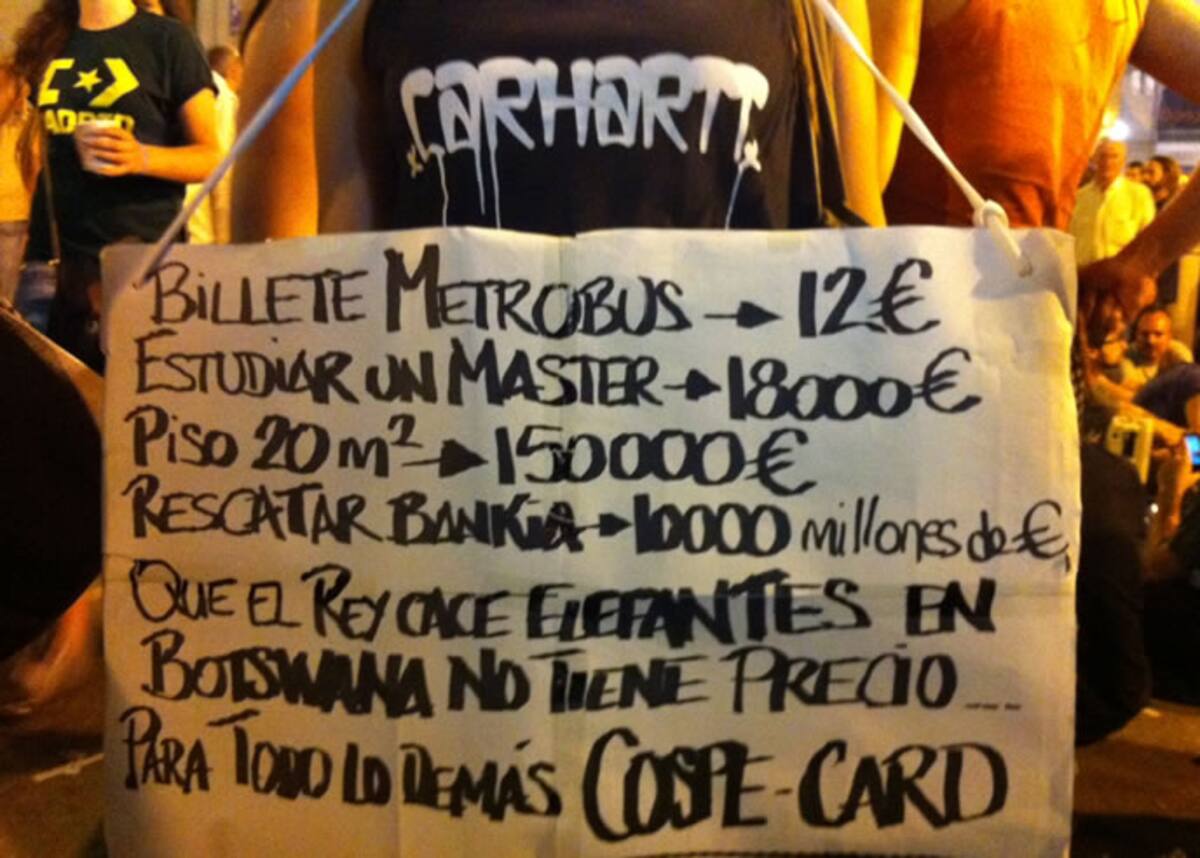 ADRID
CARHARTT
BILLETE METROBUS → 12€
ESTUDIAR UN MASTER → 18000€
PISO 20 m² → 150000€
RESCATAR BANKIA → 10000 millones de €,
QUE EL REY CACE ELEFANTES EN
BOTSWANA NO TIENE PRECIO ...
PARA TODO LO DEMÁS COSPE-CARD